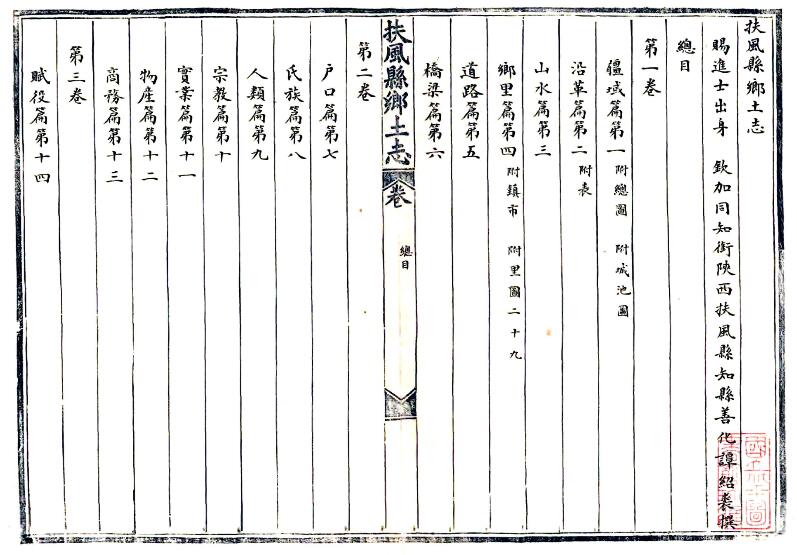 扶風縣鄉土志
賜進士出身　欽加同知銜陝西扶風縣知縣善化譚紹裘撰
總目
第一卷
疆域篇第一 附總圖　附城池圖
沿革篇第二 附表
山水篇第三
鄉里篇第四 附鎮市　附里圖二十九
道路篇第五
橋梁篇第六
扶風縣鄉土志 卷 總目
第二卷
户口篇第七
氏族篇第八
人類篇第九
宗教篇第十
實業篇第十一
物產篇第十二
商務篇第十三
第三卷
賦役篇第十四